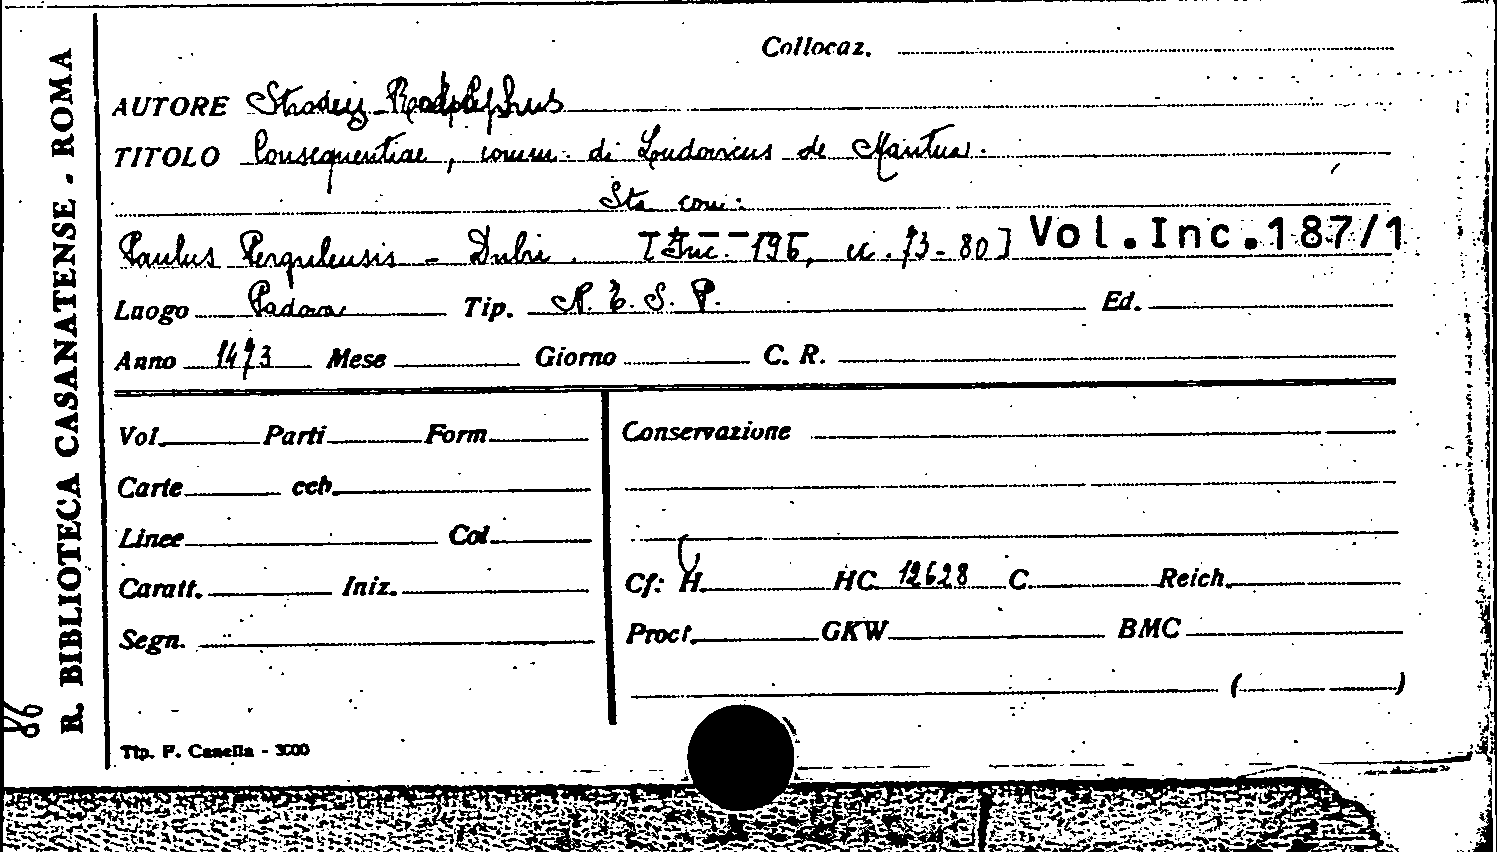 R. BIBLIOTECA CASANATENSE - ROMA
86
Collocaz.
AUTORE Strodus Radolphus
TITOLO Consequentiae, comm. di Loudovicus de Mantua.
Sta con:
Paulus Pergulensis - Dubi. [Inc. 196, n. 73-80] Vol.Inc.187/1
Luogo Padova Tip. N. T. S. P. Ed.
Anno 1473 Mese Giorno C. R.
Vol. Parti Form.
Conservazione
Carte cch.
Linee Col.
Caratt. Iniz.
Cf: H. HC 12628 C. Reich.
Segn.
Proct. GKW BMC
( )
Tip. F. Canella - 3000